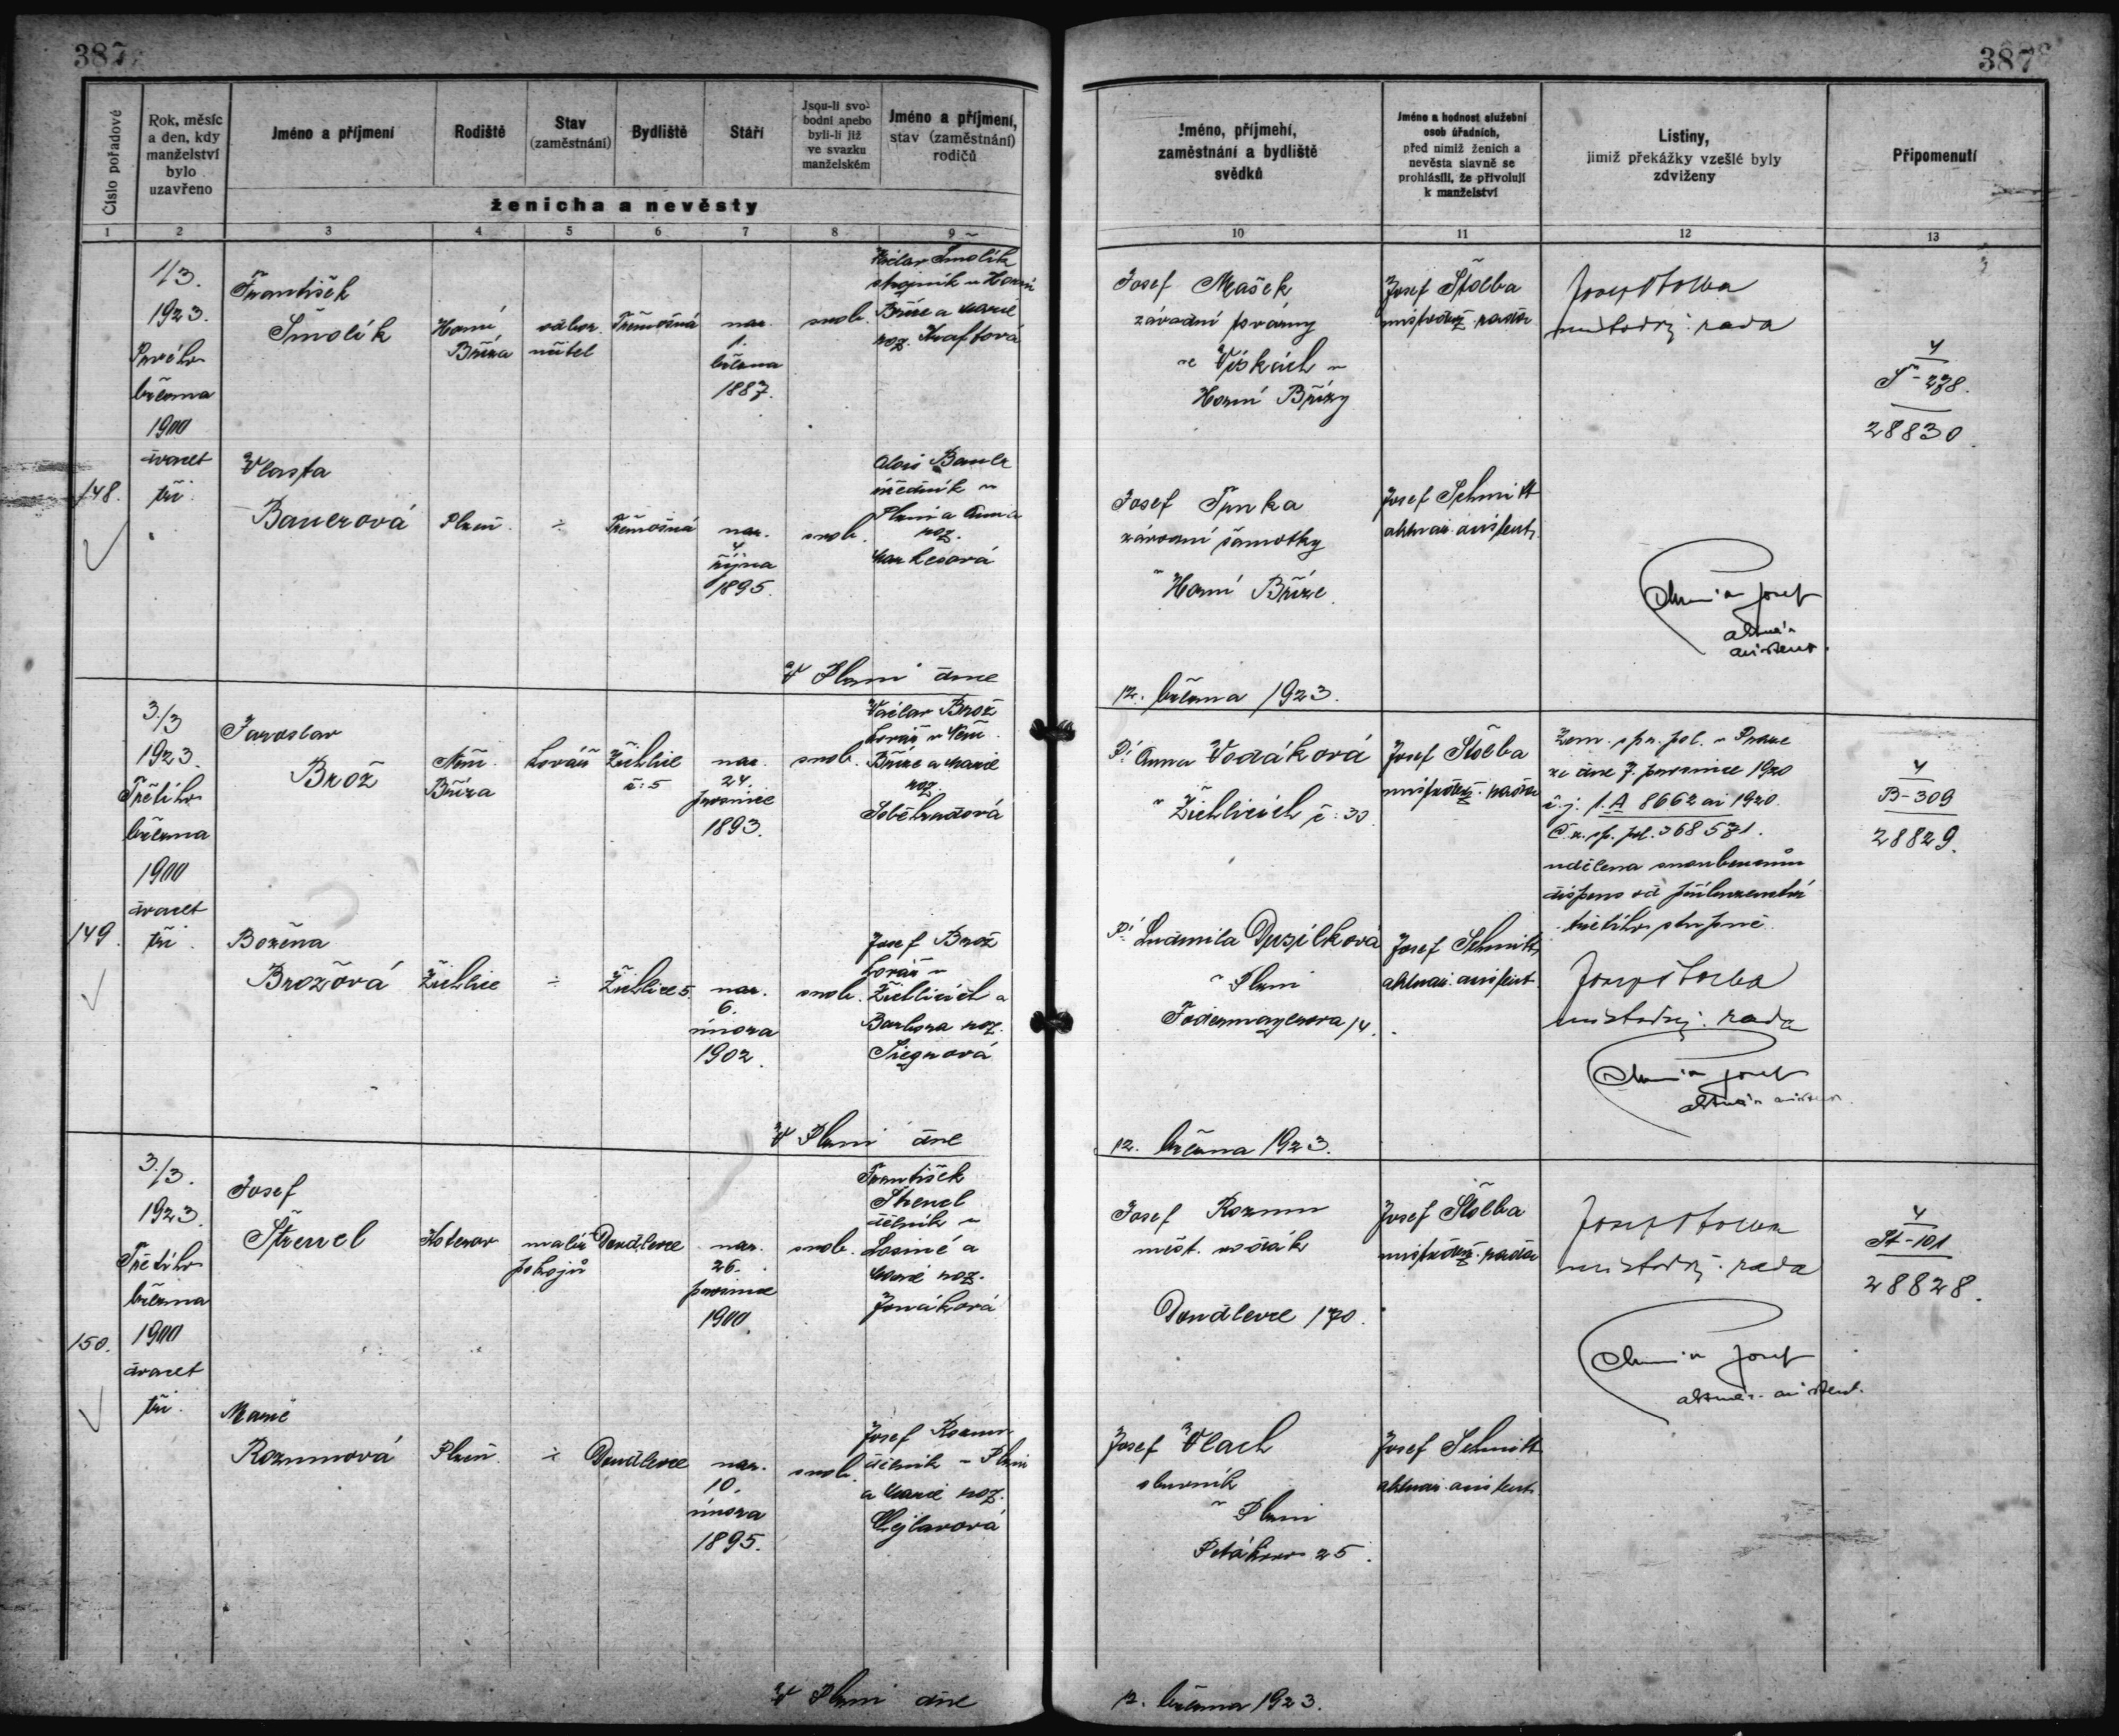 387
387
Číslo pořadové
Rok, měsíc
a den, kdy
manželství
bylo
uzavřeno
Jméno a příjmení
Rodiště
Stav
(zaměstnání)
Bydliště
Stáří
Jsou-li svo-
bodni anebo
byli-li již
ve svazku
manželském
Jméno a příjmení,
stav (zaměstnání)
rodičů
ženicha a nevěsty
Jméno, příjmení,
zaměstnání a bydliště
svědků
Jméno a hodnost služební
osob úřadních,
před nimiž ženich a
nevěsta slavně se
prohlásili, že přivolují
k manželství
Listiny,
jimiž překážky vzešlé byly
zdviženy
Připomenutí
1 2 3 4 5 6 7 8 9 10 11 12 13
148.
1/3.
1923.
Prvého
března
1900
dvacet
tři.
František
Šmolík
Horní
Bříza
odbor.
učitel
Třemošná
nar.
1.
března
1887.
svob.
Václav Šmolík
strojník v Horní
Bříze a Marie
roz. Kraftová
Josef Mašek
závodní
ve Vískách u
Horní Břízy
Josef Štolba
místodrž. rada
Josef Štolba
místodrž. rada
4
S-278.
28830.
Vlasta
Bauerová
Plzeň.
÷
Třemošná
nar.
4.
října
1895.
svob.
Alois Bauer
úředník v
Plzni a Anna
roz.
Josef Trnka
závodní šamotky
v Horní Bříze.
Josef Schmitt
aktuár. asistent.
Josef
aktuár.
asistent.
V Plzni dne
12. března 1923.
149.
3./3
1923.
Třetího
března
1900
dvacet
tři.
Jaroslav
Brož
Něm.
Bříza
kovář
Žichlice
č: 5
nar.
24.
prosince
1893.
svob.
Václav Brož
kovář v Něm.
Bříze a Marie
roz.
Soběhradová
Pí Anna Vodáková
v Žichlicích č: 30.
Josef Štolba
místodrž. rada
Zem. spr. pol. v Praze
ze dne 7. prosince 1920
č. j. 1. A 8662 ai 1920.
Č. z. sp. pol. 368 581.
udělena snoubencům
dispens od příbuzenství
třetího stupně.
Josef Štolba
místodrž. rada
4
B-309
28829.
Božena
Brožová
Žichlice
÷
Žichlice 5.
nar.
6.
února
1902.
svob.
Josef Brož
kovář v
Žichlicích a
Barbora roz.
Siegrová
Pí Ludmila Dusílková
v Plzni
Fodermayerova 14.
Josef Schmitt
aktuár. asistent.
Josef
aktuár. asistent.
V Plzni dne
12. března 1923.
150.
3./3.
1923.
Třetího
března
1900
dvacet
tři.
Josef
Štrencl
Koterov
malíř
pokojů
Doudlevce
nar.
26.
prosince
1900.
svob.
František
Štrencl
dělník v
Losiné a
Marie roz.
Josef Rozum
měst.
Doudlevce 170.
Josef Štolba
místodrž. rada
Josef Štolba
místodrž. rada
4
St-101
28828.
Marie
Rozumová
Plzeň.
÷
Doudlevce
nar.
10.
února
1895.
svob.
Josef Rozum
dělník v Plzni
a Marie roz.
Cejlarová
Josef Vlach
v Plzni
Petákova 25.
Josef Schmitt
aktuár. asistent.
Josef
aktuár. asistent.
V Plzni dne
12. března 1923.